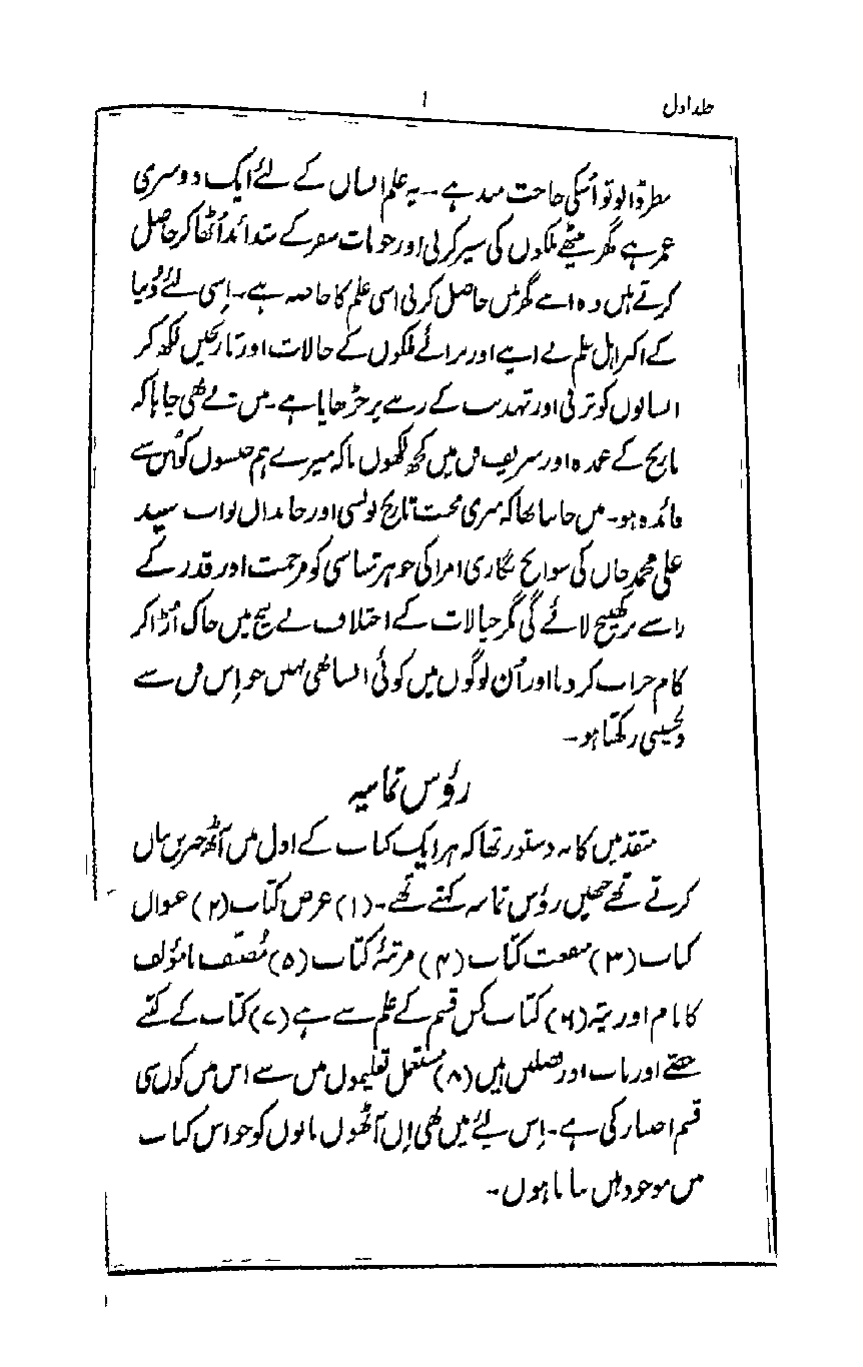 جلد اول
۱
نظر ڈالو تو اُسکی حاجت مند ہے۔ یہ علم انسان کے لئے ایک دوسری
عمر ہے مگر بیٹھے ملکوں کی سیر کرلی اور جو بات سفر کے شدائد اُٹھا کر حاصل
کرتے ہیں وہ اسے گھر میں حاصل کرلی اسی علم کا خاصہ ہے۔ اِسی لئے دُنیا
کے اکثر اہل علم نے اپنے اور پرائے ملکوں کے حالات اور تاریخیں لکھ کر
انسانوں کو ترقی اور تہذیب کے رستے پر چڑھایا ہے۔ میں نے بھی چاہا کہ
تاریخ کے عمدہ اور شریف فن میں کچھ لکھوں تاکہ میرے ہم جنسوں کو اُس سے
فائدہ ہو۔ میں جانتا تھا کہ میری محنت تاریخ نویسی اور خاندان نواب سید
علی محمد خاں کی سوانح نگاری امرا کی جوہر شناسی کو مرحمت اور قدر کے
راستے پر کھینچ لائے گی مگر خیالات کے اختلاف نے بیچ میں خاک اُڑا کر
کام خراب کر دیا اور اُن لوگوں میں کوئی ایسا بھی نہیں جو اِس فن سے
دلچسپی رکھتا ہو۔
رؤس ثمانیہ
متقدمین کا یہ دستور تھا کہ ہر ایک کتاب کے اول میں آٹھ چیزیں بیان
کرتے تھے جنھیں رؤس ثمانیہ کہتے تھے۔ (۱) غرض کتاب (۲) عنوان
کتاب (۳) منفعت کتاب (۴) مرتبۂ کتاب (۵) مُصنف یا مؤلف
کا نام اور پتہ (۶) کتاب کس قسم کے علم سے ہے (۷) کتاب کے کتنے
حصّے اور باب اور فصلیں ہیں (۸) مستعمل تعلیموں میں سے اس میں کون سی
قسم اختیار کی ہے۔ اِس لیئے میں بھی اِن آٹھوں باتوں کو جو اس کتاب
میں موجود ہیں بتاتا ہوں۔